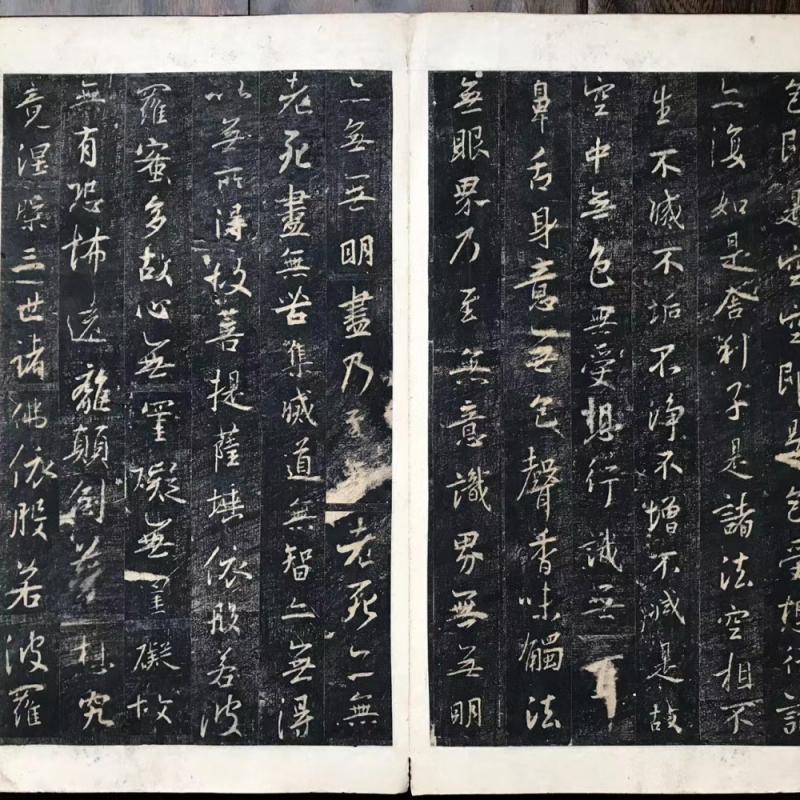 色即是空空即是色受想行識
亦復如是舍利子是諸法空相不
生不滅不垢不淨不增不減是故
空中無色無受想行識無
鼻舌身意無色聲香味觸法
無眼界乃至無意識界無無明
亦無無明盡乃至老死亦無
老死盡無苦集滅道無智亦無得
以無所得故菩提薩埵依般若波
羅蜜多故心無罣礙無罣礙故
無有恐怖遠離顛倒夢想究
竟涅槃三世諸佛依般若波羅